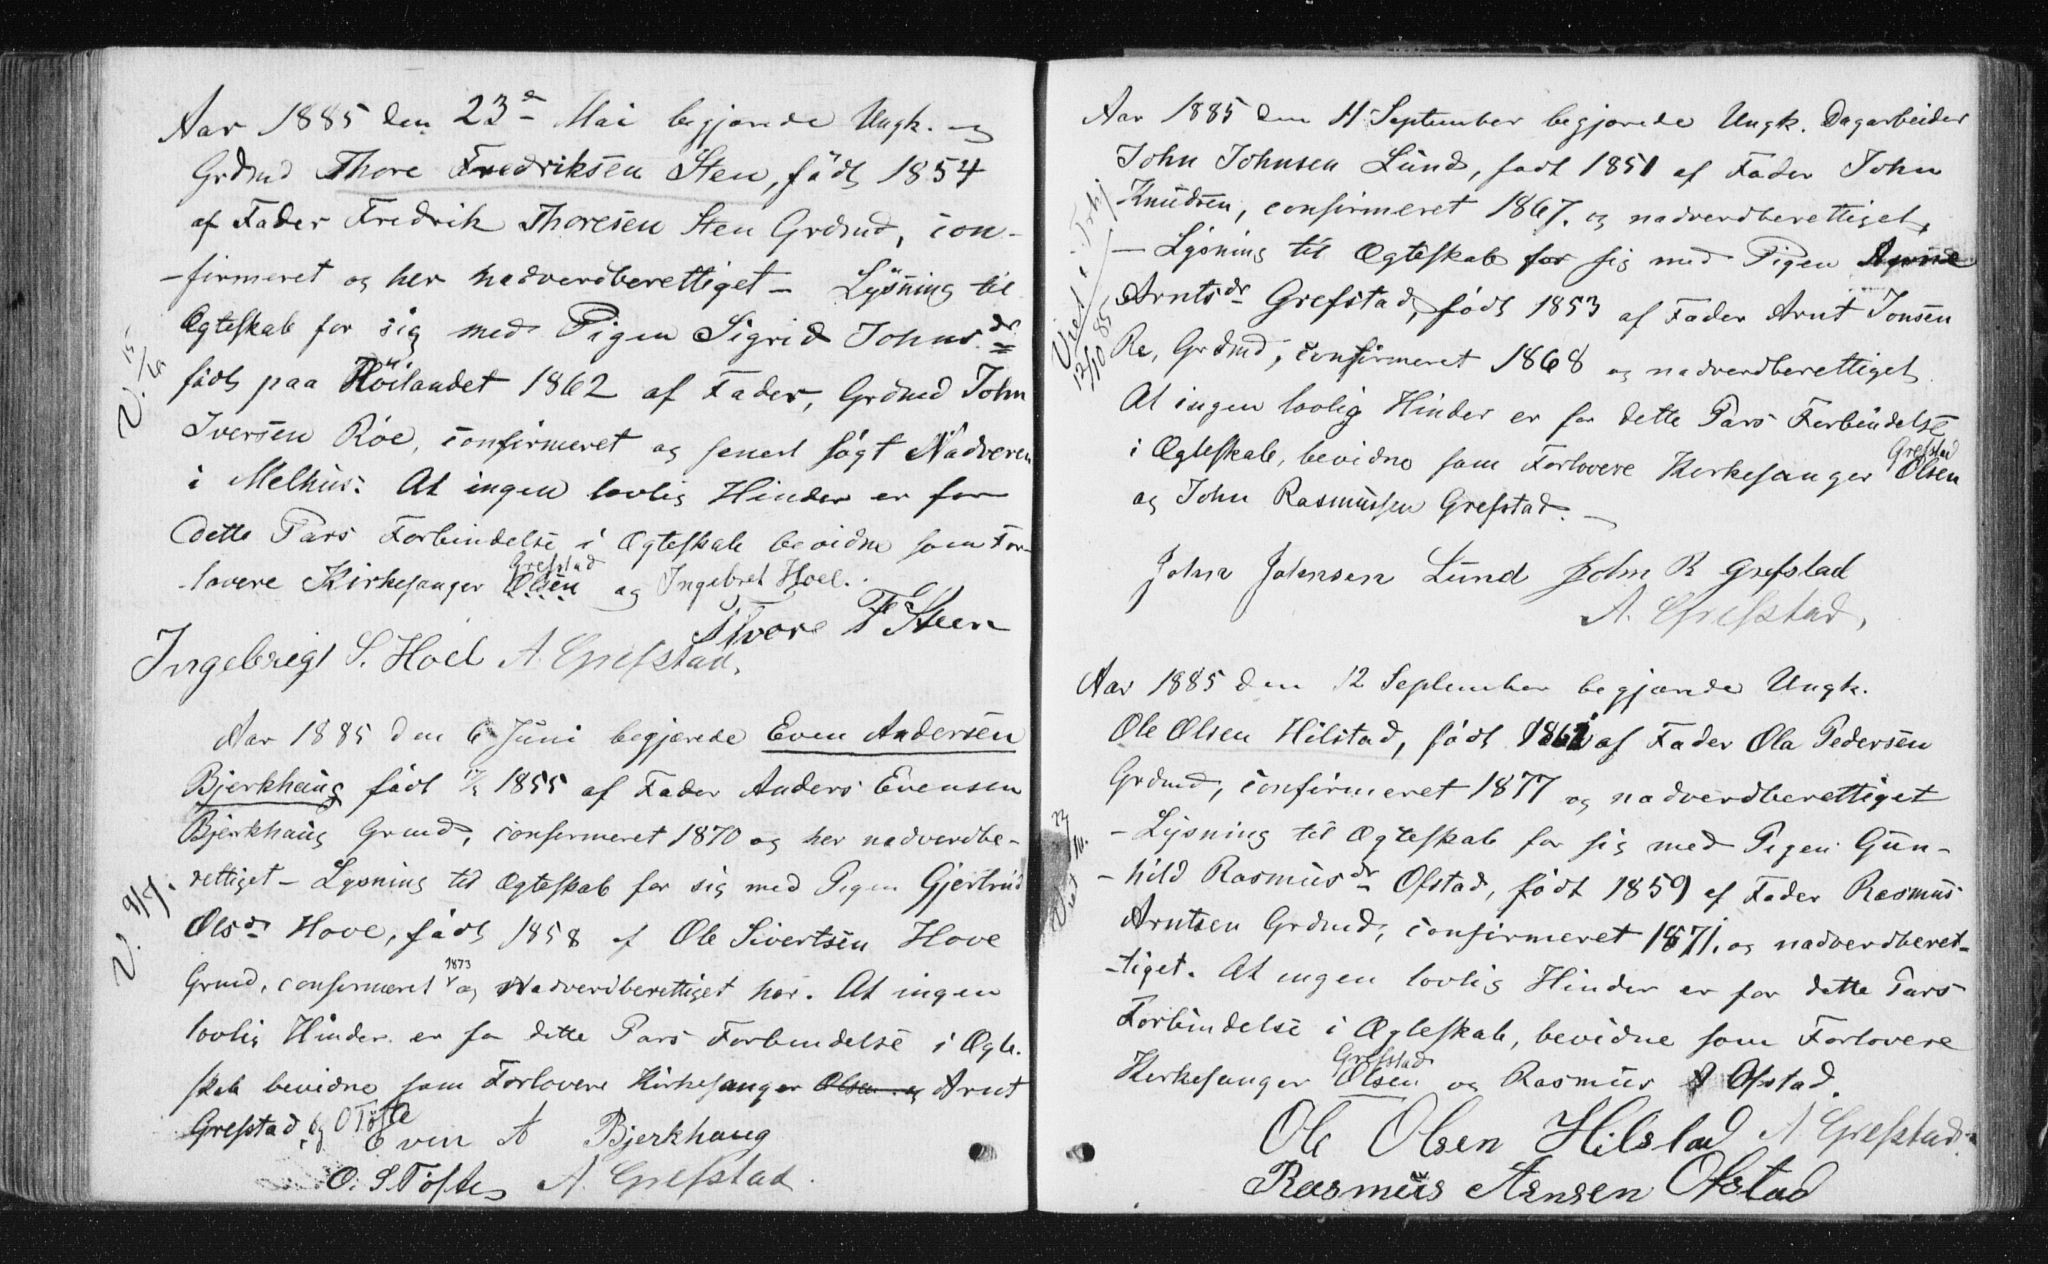 Aar 1885 den 23de Mai begjærede Ungk. og
Grdmd Thore Fredriksen Sten, född 1854
af Fader Fredrik Thoresen Sten Grdmd, con-
-firmeret og her nadverdberettiget - Lysning til
Ægteskab for sig med Pigen Sigrid Johnsdr
född paa Höilandet 1862 af Fader, Grdmd John
Iversen Röe, confirmeret og senest sögt Nadveren
i Melhus. At ingen lovlig Hinder er for
dette Pars Forbindelse i Ægteskab bevidne som For-
Grefstad
-lovere Kirkesanger Olsen og Ingebret Hoel.
Thore F Steen
Ingebrigt S. Hoel A. Grefstad.
V. 15/6
Aar 1885 den 6 Juni begjærede Even Andersen
Bjerkhaug födt 1855 af Fader Anders Evensen
Bjerkhaug Grmd, confirmeret 1870 og her nadverdbe-
rettiget - Lysning til Ægteskab for sig med Pigen Gjertrud
Olsdr Hove, födt 1858 af Ole Sivertsen Hove
1873
Grmd, confirmeret og Nadverdberettiget her. At ingen
lovlig Hinder er for dette Pars Forbindelse i Ægte-
skab bevidne som Forlovere Kirkesanger Olsen og Arnt
Grefstad og O Töfte
Even A Bjerkhaug
O. S. Töfte A. Grefstad.
V. 9/7.
Aar 1885 den 11 September begjærede Ungk. Dagarbeider
John Johnsen Lund, födt 1851 af Fader John
Knudsen, confirmeret 1867. og nadverdberettiget,
- Lysning til Ægteskab for sig med Pigen
Arntsdr Grefstad, födt 1853 af Fader Arnt Jonsen
Re, Grdmd, confirmeret 1868 og nadverdberettiget
At ingen lovlig Hinder er for dette Pars Forbindelse
Grefstad
i Ægteskab, bevidne som Forlovere Kirkesanger Olsen
og John Rasmussen Grefstad. -
John Johnsen Lund John R Grefstad
A. Grefstad,
Viet i
12/10 85
Aar 1885 den 12 September begjærede Ungk.
Ole Olsen Hilstad, födt 1862 af Fader Ola Pedersen
Grdmd, confirmeret 1877 og nadverdberettiget
- Lysning til Ægteskab for sig med Pigen Gun-
-hild Rasmusdr Ofstad, födt 1859 af Fader Rasmus
Arntsen Grdmd, confirmeret 1871. og nadverdberet-
-tiget. At ingen lovlig Hinder er for dette Pars
Forbindelse i Ægteskab, bevidne som Forlovere
Grefstad
Kirkesanger Olsen og Rasmus A Ofstad.
Ole Olsen Hilstad A Grefstad.
Rasmus Arnsen Ofstad
Viet